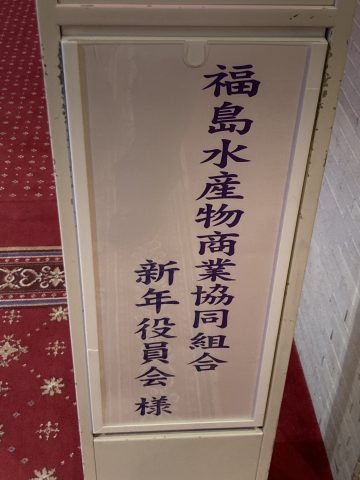 福島水産物商業協同組合
新年役員会様